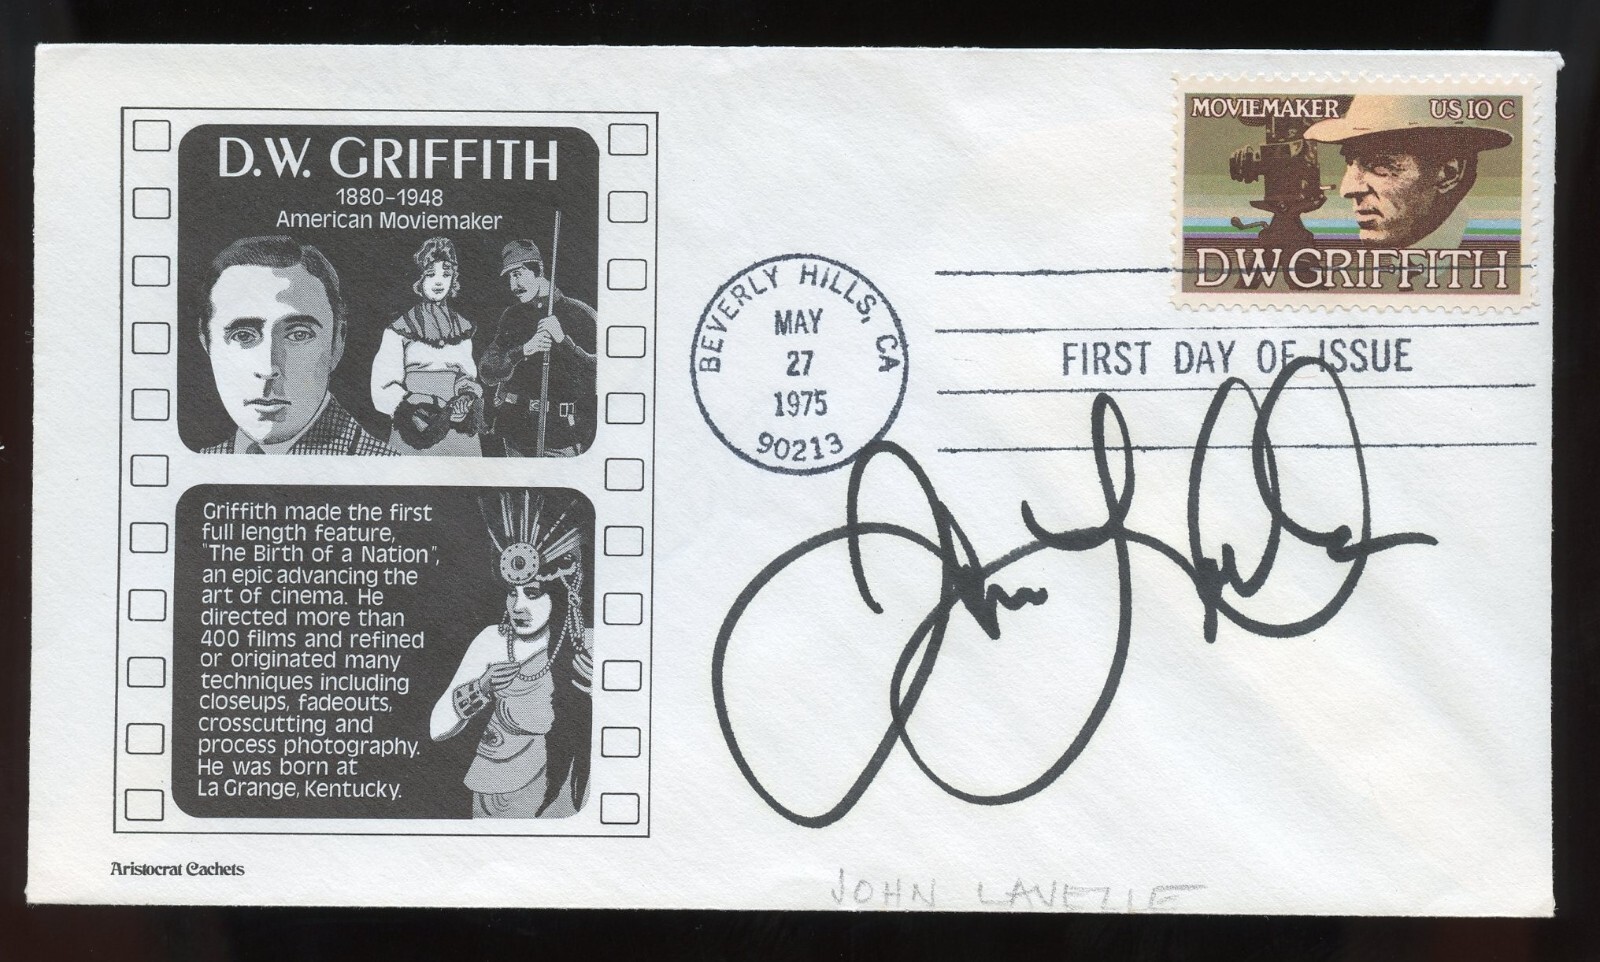 D.W. GRIFFITH
1880-1948
American Moviemaker
Griffith made the first
full length feature,
"The Birth of a Nation",
an epic advancing the
art of cinema. He
directed more than
400 films and refined
or originated many
techniques including
closeups, fadeouts,
crosscutting and
process photography.
He was born at
La Grange, Kentucky.
Aristocrat Cachets
BEVERLY HILLS, CA
MAY
27
1975
90213
MOVIEMAKER US 10 C
DW GRIFFITH
FIRST DAY OF ISSUE
JOHN LAVELLE